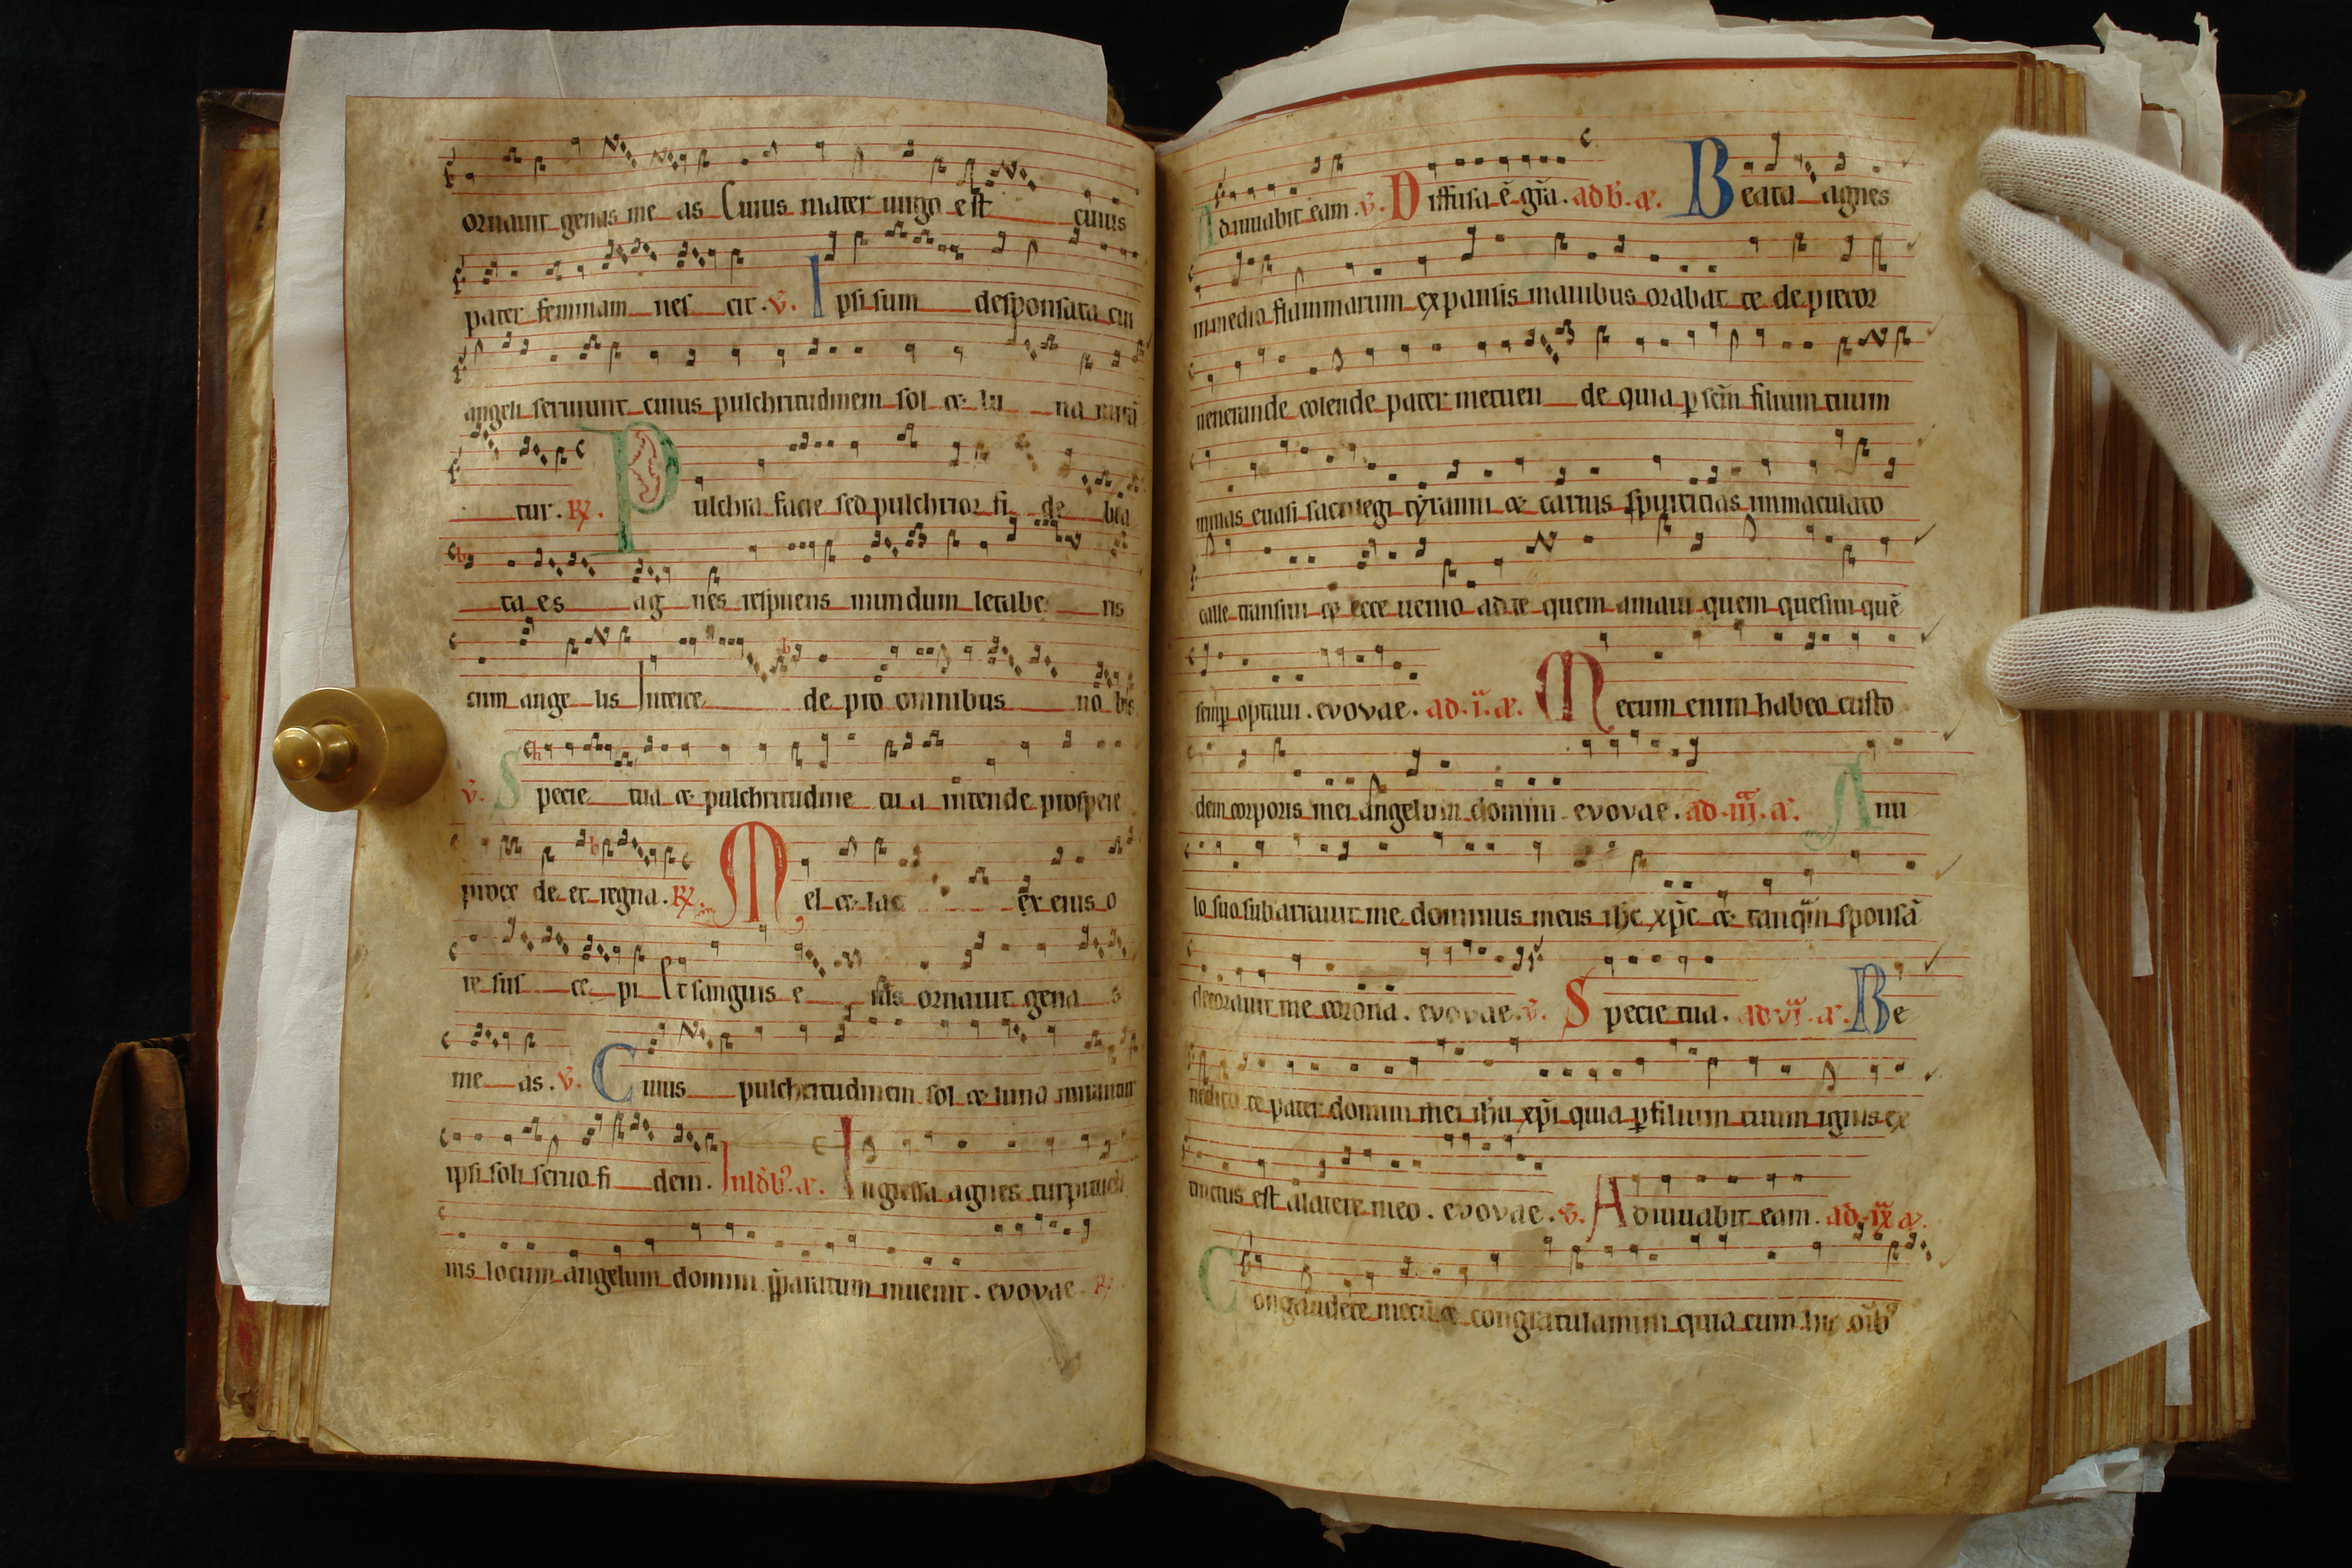 ornauit genas me as Cuius mater uirgo est cuius
pater feminam nes cit. v̄. Ipsi sum desponsata cui
angeli seruiunt cuius pulchritudinem sol & lu na mirā
tur. R̷. Pulchra facie sed pulchrior fi de bea
ta es ag nes respuens mundum letabe ris
cum ange lis Interce de pro omnibus no bis
v̄. Specie tua & pulchritudine tu a intende prospere
proce de et regna. R̷. Mel & lac ex eius o
re sus ce pi Et sanguis e ius ornauit gena s
me as. v̄. Cuius pulchritudinem sol & luna mirantur
ipsi soli seruo fi dem. In ldb᷒. a. Ingressa agnes turpitudi
nis locum angelum domini p̄paratum inuenit. evovae. R̷
Adiuuabit eam. v̄. Diffusa ē grā. ad b. a. Beata agnes
in medio flammarum expansis manibus orabat te deprecor
uenerande colende pater metuen de quia ꝑ scm̄ filium tuum
minas euasi sacrilegi tyranni & carnis spurcicias inmaculato
calle transiui & ecce uenio ad te quem amaui quem quesiui quē
semꝑ optaui. evovae. ad .i. a. Mecum enim habeo custo
dem corporis mei angelum domini. evovae. ad .iij. a. Anu
lo suo subarrauit me dominus meus ihc xpc & tanqm̄ sponsā
decorauit me coronā. evovae. v̄. Specie tua. ad vi. a. Be
nedico te pater domini mei ihu xpi quia ꝑ filium tuum ignis ex
tinctus est a latere meo. evovae. v̄. Adiuuabit eam. ad .ix. a.
Congaudete mecū & congratulamini quia cum his oīb᷒